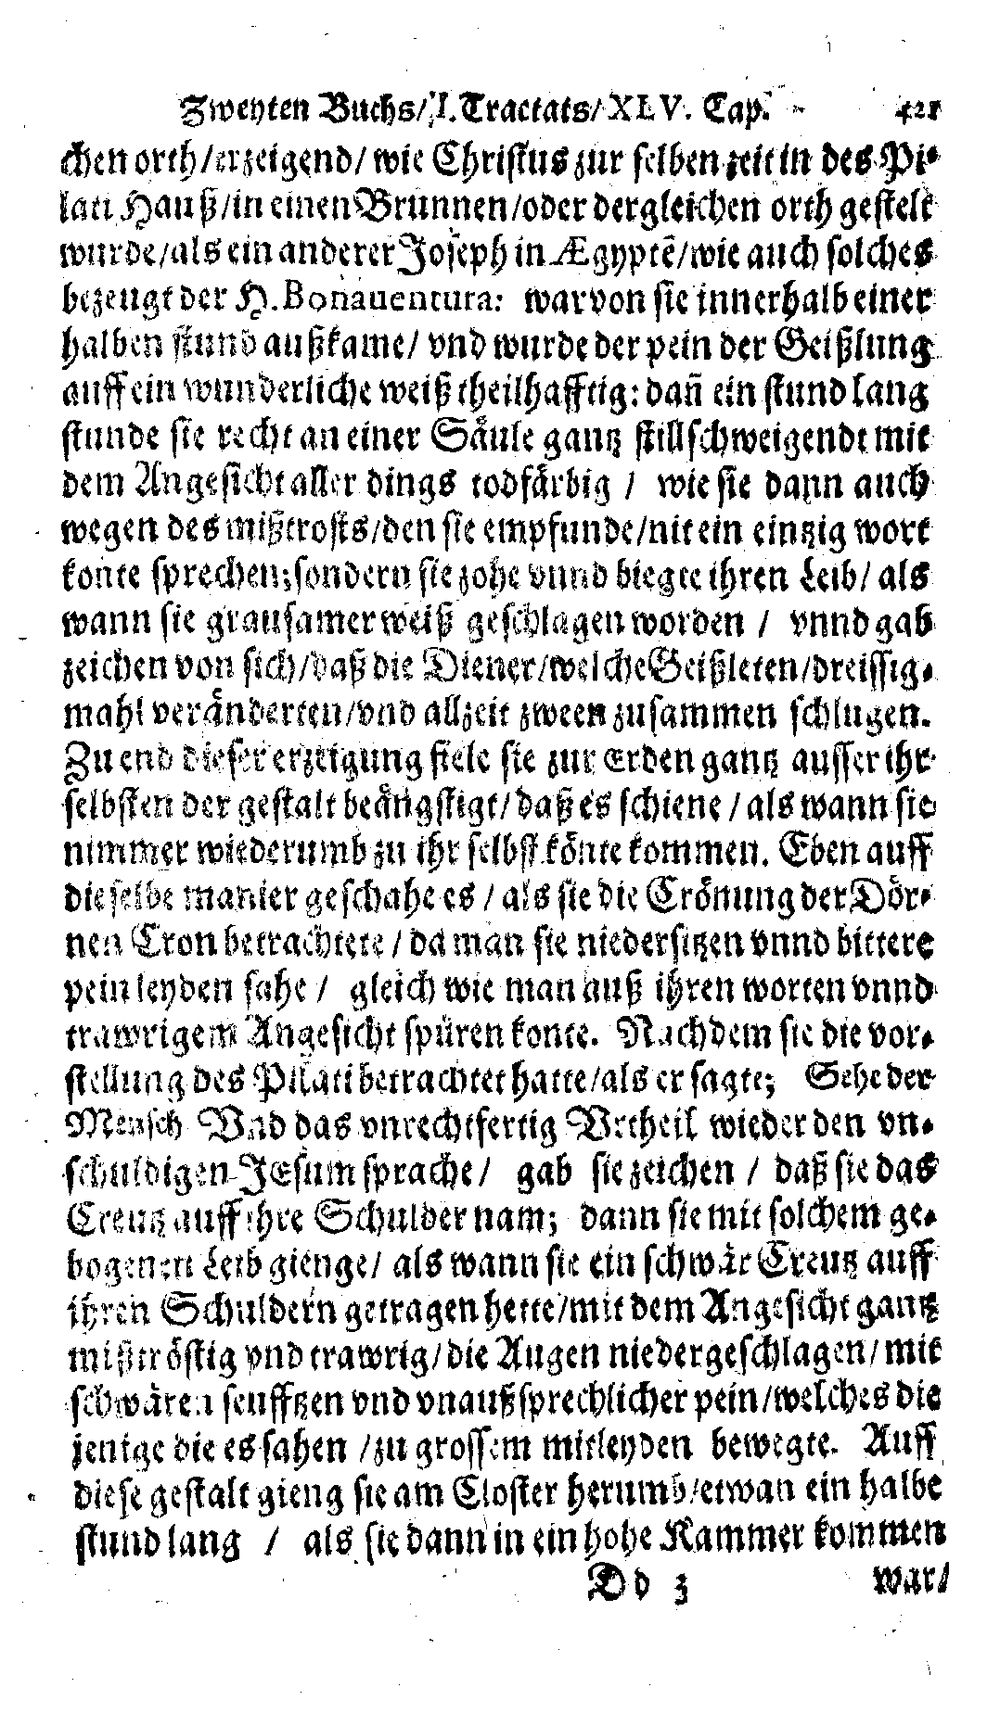 Zweyten Buchs/ I. Tractats/ XLV. Cap. 421
chen orth/erzeigend/ wie Christus zur selben zeit in des Pi-
lati Hauß/in einen Brunnen/oder dergleichen orth gestelt
wurde/als ein anderer Joseph in Ægyptē/wie auch solches
bezeugt der H. Bonaventura: warvon sie innerhalb einer
halben stund außkame/ vnd wurde der pein der Geißlung
auff ein wunderliche weiß theilhafftig: dañ ein stund lang
stunde sie recht an einer Säule gantz stillschweigendt mit
dem Angesicht aller dings todfärbig / wie sie dann auch
wegen des mißtrosts/den sie empfunde/nit ein eintzig wort
konte sprechen; sondern sie zohe vnnd biegte ihren Leib/ als
wann sie grausamer weiß geschlagen worden / vnnd gab
zeichen von sich/daß die Diener/welche Geißleten/dreissig-
mahl veränderten/vnd allzeit zween zusammen schlugen.
Zu end dieser erzeigung fiele sie zur Erden gantz ausser ihr
selbsten der gestalt beängstigt/ daß es schiene / als wann sie
nimmer wiederumb zu ihr selbst könte kommen. Eben auff
dieselbe manier geschahe es / als sie die Crönung der Dör-
nen Cron betrachtete / da man sie niedersitzen vnnd bittere
pein leyden sahe / gleich wie man auß ihren worten vnnd
trawrigem Angesicht spüren konte. Nachdem sie die vor-
stellung des Pilati betrachtet hatte/als er sagte; Sehe der
Mensch Vnd das vnrechtfertig Vrtheil wieder den vn-
schuldigen JEsum sprache / gab sie zeichen / daß sie das
Creutz auff ihre Schulder nam; dann sie mit solchem ge-
bogenen Leib gienge/ als wann sie ein schwär Creutz auff
ihren Schuldern getragen hette/mit dem Angesicht gantz
mißtröstig vnd trawrig/die Augen niedergeschlagen/mit
schwären seufftzen vnd vnaußsprechlicher pein/welches die
jenige die es sahen /zu grossem mitleyden bewegte. Auff
diese gestalt gieng sie am Closter herumb/etwan ein halbe
stund lang / als sie dann in ein hohe Kammer kommen
Dd 3 war/